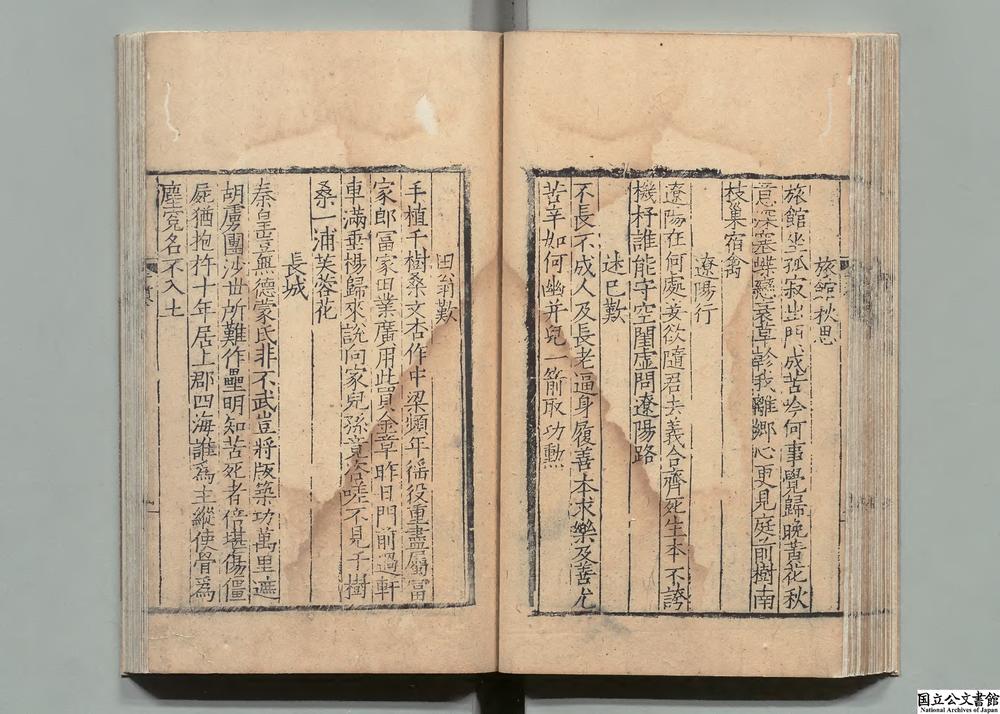 旅館秋思
旅館坐孤寂出門成苦吟何事覺歸晚黃花秋
意深寒蝶戀衰草軫我離鄉心更見庭前樹南
枝巢宿禽
遼陽行
遼陽在何處妾欲隨君去義合齊死生本不誇
機杼誰能守空閨虛問遼陽路
速已歎
不長不成人及長老逼身履善本求樂及善尤
苦辛如何幽并兒一箭取功勲
田翁歎
手植千樹桑文杏作中梁頻年徭役重盡屬富
家郎富家田業廣用此買金章昨日門前過軒
車滿垂楊歸來說向家兒孫竟咨嗟不見千樹
桑一浦芙蓉花
長城
秦皇豈無德蒙氏非不武豈將版築功萬里遮
胡虜團沙世所難作壘明知苦死者倍堪傷僵
屍猶抱杵十年居上郡四海誰爲主縱使骨爲
塵冤名不入土
国立公文書館
National Archives of Japan